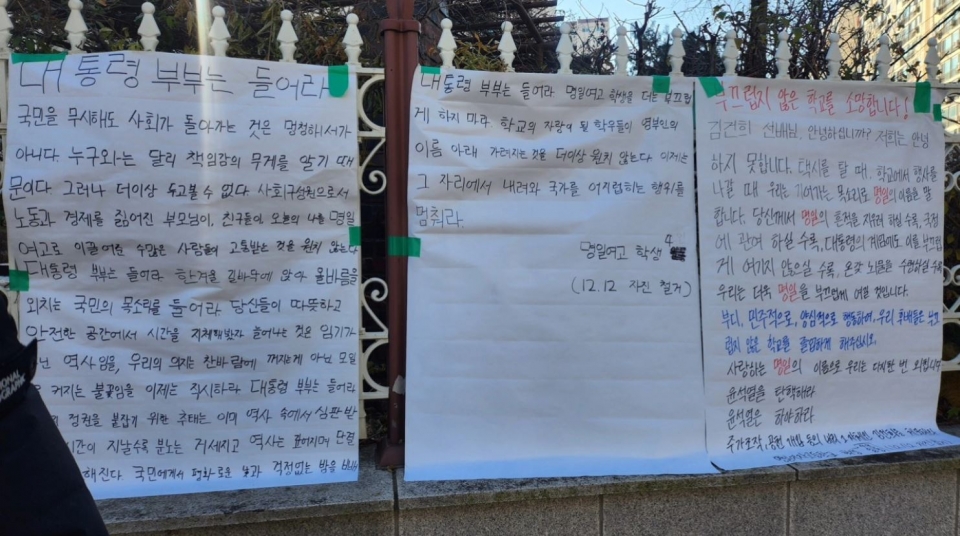 대통령 부부는 들어라
국민을 무시해도 사회가 돌아가는 것은 멍청해서가
아니다. 누구와는 달리 책임감의 무게를 알기 때
문이다. 그러나 더이상 두고볼 수 없다. 사회구성원으로서
노동과 경제를 짊어진 부모님이, 친구들이 오늘의 사를 명일
여고로 이끌어준 수많은 사람들이 고통받는 것을 원치 않는다
대통령 부부는 들어라 한겨울 길바닥에 앉아 올바름을
외치는 국민의 목소리를 들어라 당신들이 따뜻하고
안전한 공간에서 시간을 지체해봤자 늘어나는 것은 임기가
닌 역사임을, 우리의 의지는 찬바람에 꺼지는게 아닌 모일
커지는 불꽃임을 이제는 직시하라 대통령 부부는 들어라
정권을 붙잡기 위한 추태는 이미 역사 속에서 심판 받
시간이 지날수록 분노는 거세지고 역사는 깊어지며 단결
해진다. 국민에게서 평화로운 낮과 걱정없는 밤을
대통령 부부는 들어라 명일여고 학생을 더는 부끄럽
게 하지 마라. 학교의 자랑이 될 학우들이 영부인의
이름 아래 가려지는 것을 더이상 원치 않는다. 이제는
그 자리에서 내려와 국가를 어지럽히는 행위를
멈춰라.
명일여고 학생 4
(12.12 자진 철거)
부끄럽지 않은 학교를 소망합니다!
김건희 선배님, 안녕하십니까? 저희는 안녕
하지 못합니다. 택시를 탈 때, 학교에서 행사를
나갈 때 우리는 기어가는 목소리로 명일의 이름을 말
합니다. 당신께서 명일의 흔적을 지우려 하실수록, 국정
에 관여 하실 수록, 대통령의 계엄마저도 부끄럽
게 여기지 않으실 수록, 온갖 뇌물을 수령하실수록
우리는 더욱 명일을 부끄럽게 여길 것입니다.
부디, 민주적으로, 양심적으로 행동하여, 우리 후배들은 부끄
럽지 않은 학교를 졸업하게 해주십시오.
사랑하는 명일의 이름으로 우리는 다시한 번 외칩니다
윤석열을 탄핵해라
윤석열은 하야하라
주가조작, 공천 개입